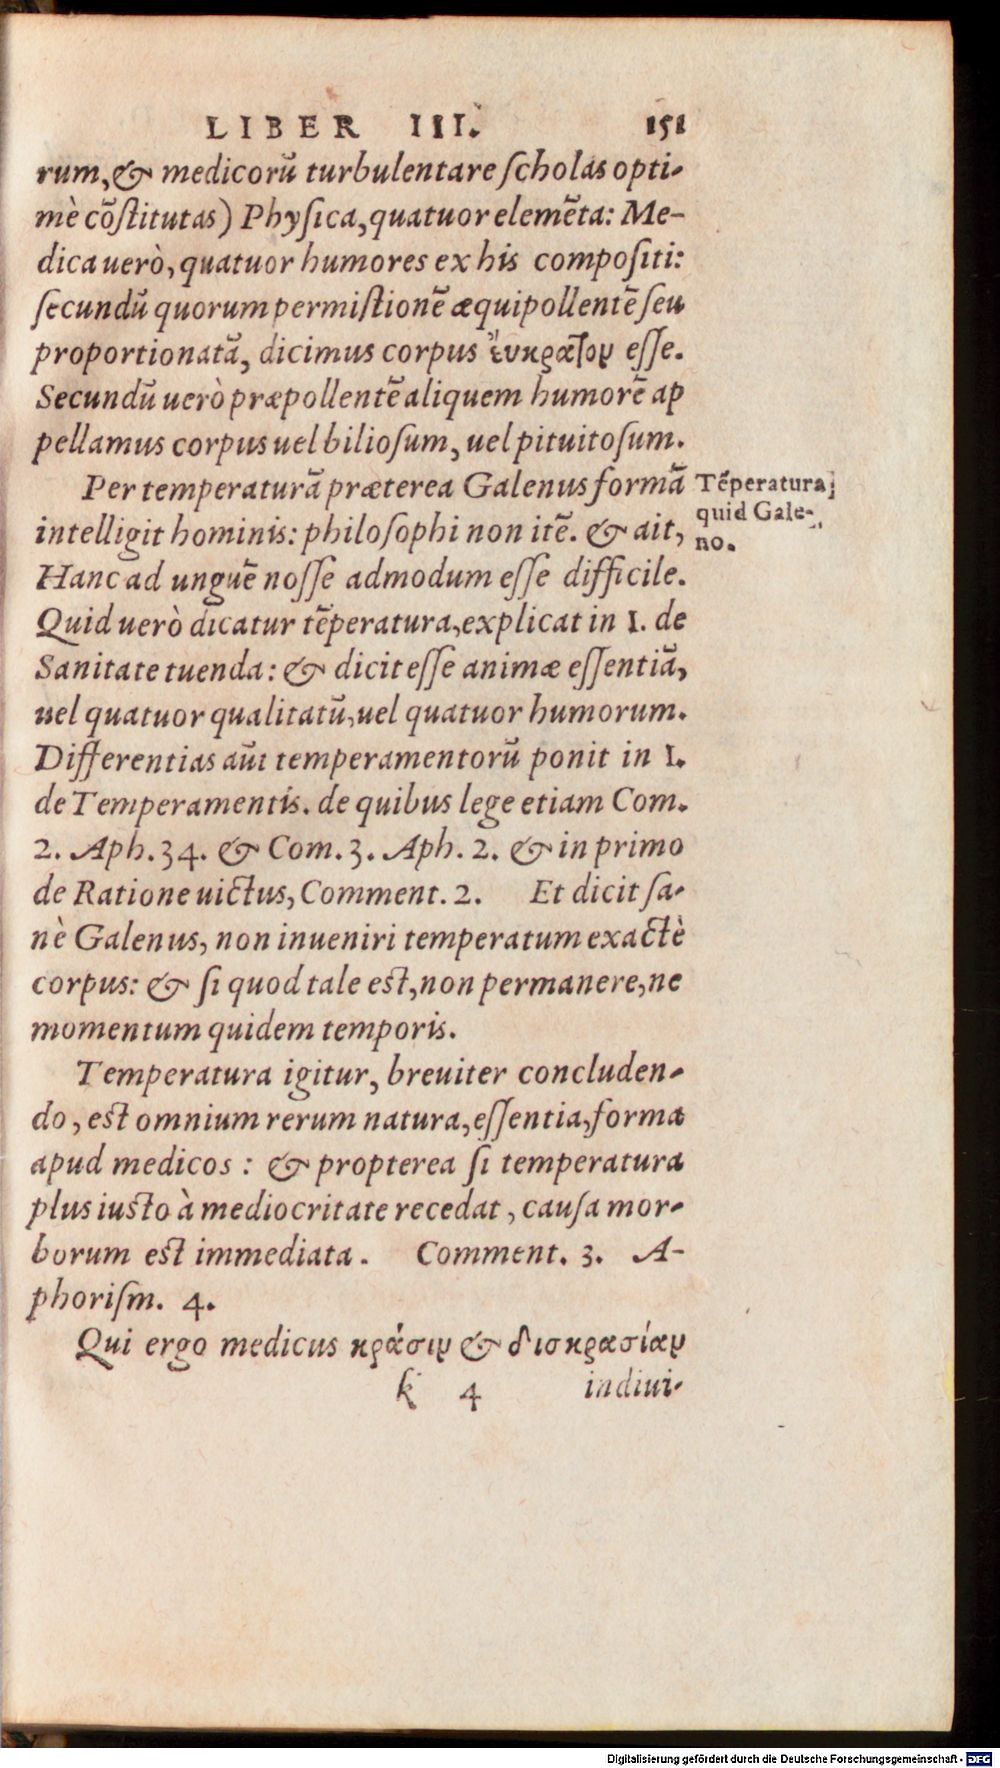 LIBER III. 151
rum, & medicorũ turbulentare ſcholas opti-
mè cõſtitutas) Phyſica, quatuor elemẽta: Me-
dica uerò, quatuor humores ex his compoſiti:
ſecundũ quorum permiſtionẽ æquipollentẽ ſeu
proportionatã, dicimus corpus ἐυκρατον eſſe.
Secundũ uerò præpollentẽ aliquem humorẽ ap
pellamus corpus uel bilioſum, uel pituitoſum.
Per temperaturã præterea Galenus formã
Tẽperatura
quid Gale-
no.
intelligit hominis: philoſophi non itẽ. & ait,
Hanc ad unguẽ noſſe admodum eſſe difficile.
Quid uerò dicatur tẽperatura, explicat in 1. de
Sanitate tuenda: & dicit eſſe animæ eſſentiã,
uel quatuor qualitatũ, uel quatuor humorum.
Differentias aũt temperamentorũ ponit in 1.
de Temperamentis. de quibus lege etiam Com.
2. Aph. 34. & Com. 3. Aph. 2. & in primo
de Ratione uictus, Comment. 2. Et dicit ſa-
nè Galenus, non inueniri temperatum exactè
corpus: & ſi quod tale eſt, non permanere, ne
momentum quidem temporis.
Temperatura igitur, breuiter concluden-
do, eſt omnium rerum natura, eſſentia, forma
apud medicos: & propterea ſi temperatura
plus iuſto à mediocritate recedat, cauſa mor-
borum eſt immediata. Comment. 3. A-
phoriſm. 4.
Qui ergo medicus κράσιν & δισκρασίαν
k 4 indiui-
Digitalisierung gefördert durch die Deutsche Forschungsgemeinschaft - DFG